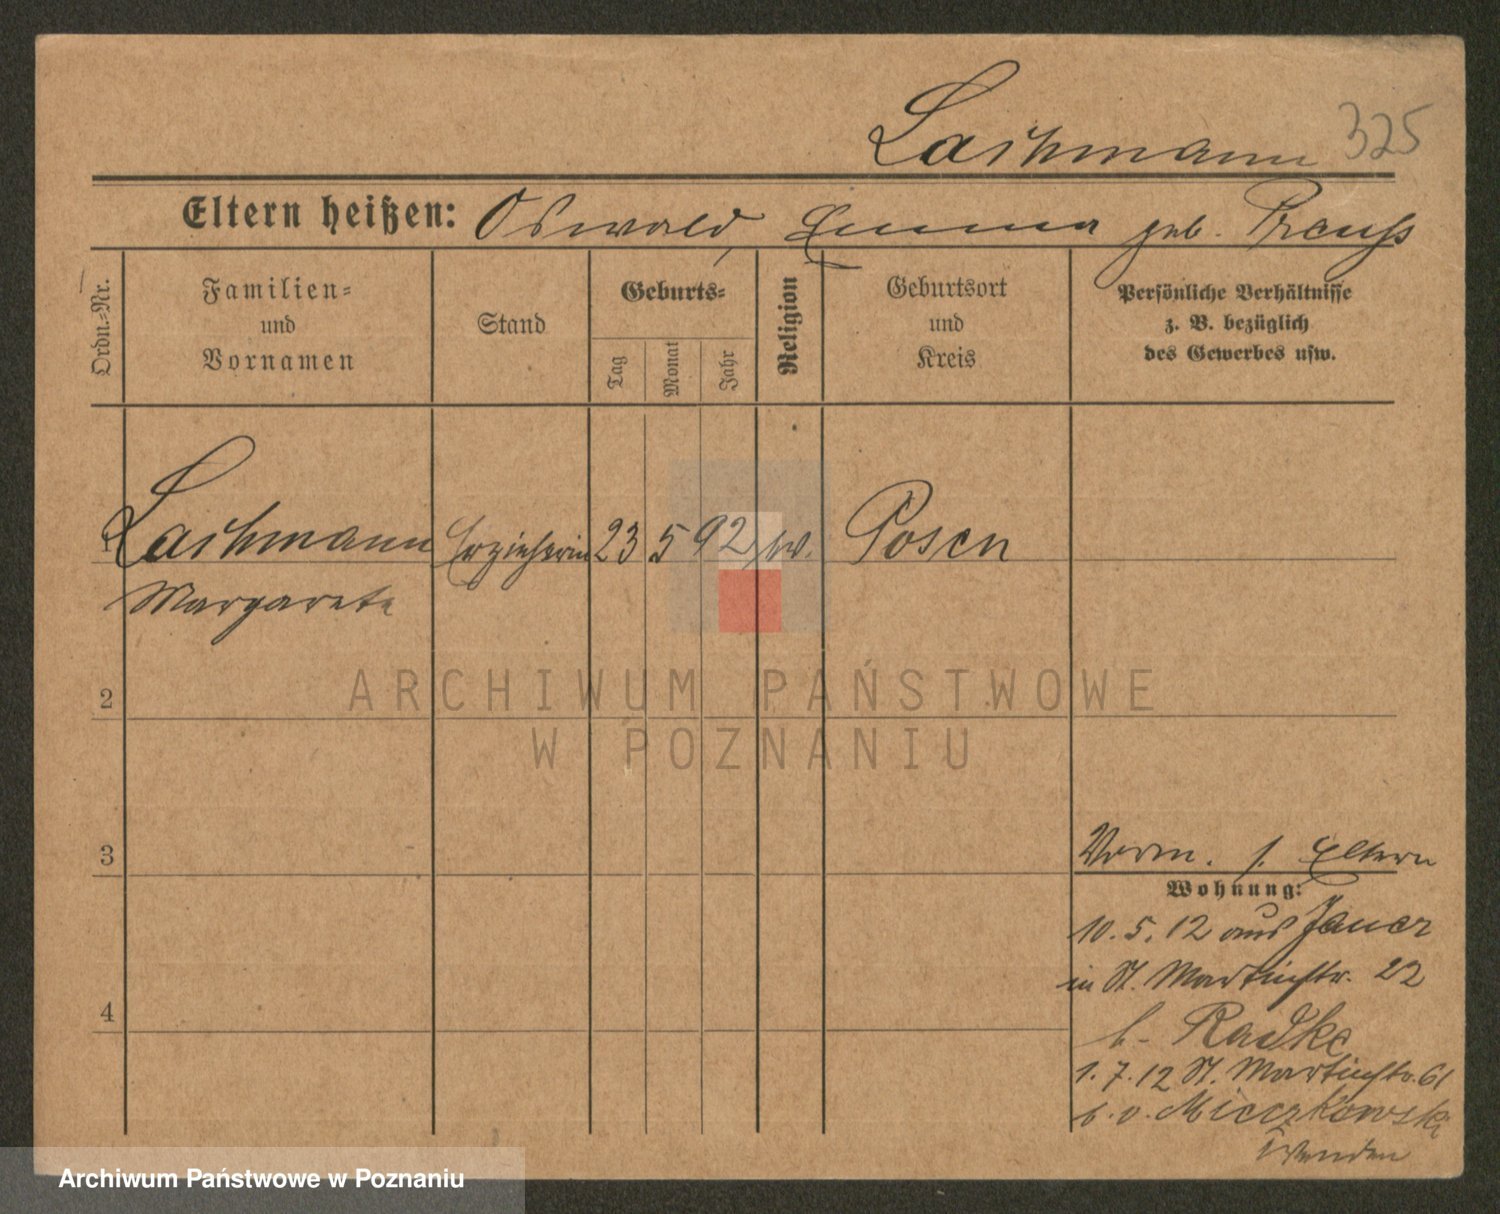 Lachmann 325
Eltern heißen: Oswald, Emma geb. Preuss
Ordn.-Nr.
Familien-
und
Vornamen
Stand
Geburts-
Tag
Monat
Jahr
Religion
Geburtsort
und
Kreis
Persönliche Verhältnisse
z. B. bezüglich
des Gewerbes usw.
1 Lachmann Erzieherin 23 5 92 ev. Posen
Margarete
ARCHIWUM PAŃSTWOWE
W POZNANIU
2
3
4
Verm. s. Eltern
Wohnung:
10.5.12 aus Jauer
in St. Martinstr. 22
b. Radke
1.7.12 St. Martinstr. 61
b. v. Mieczkowski
Archiwum Państwowe w Poznaniu